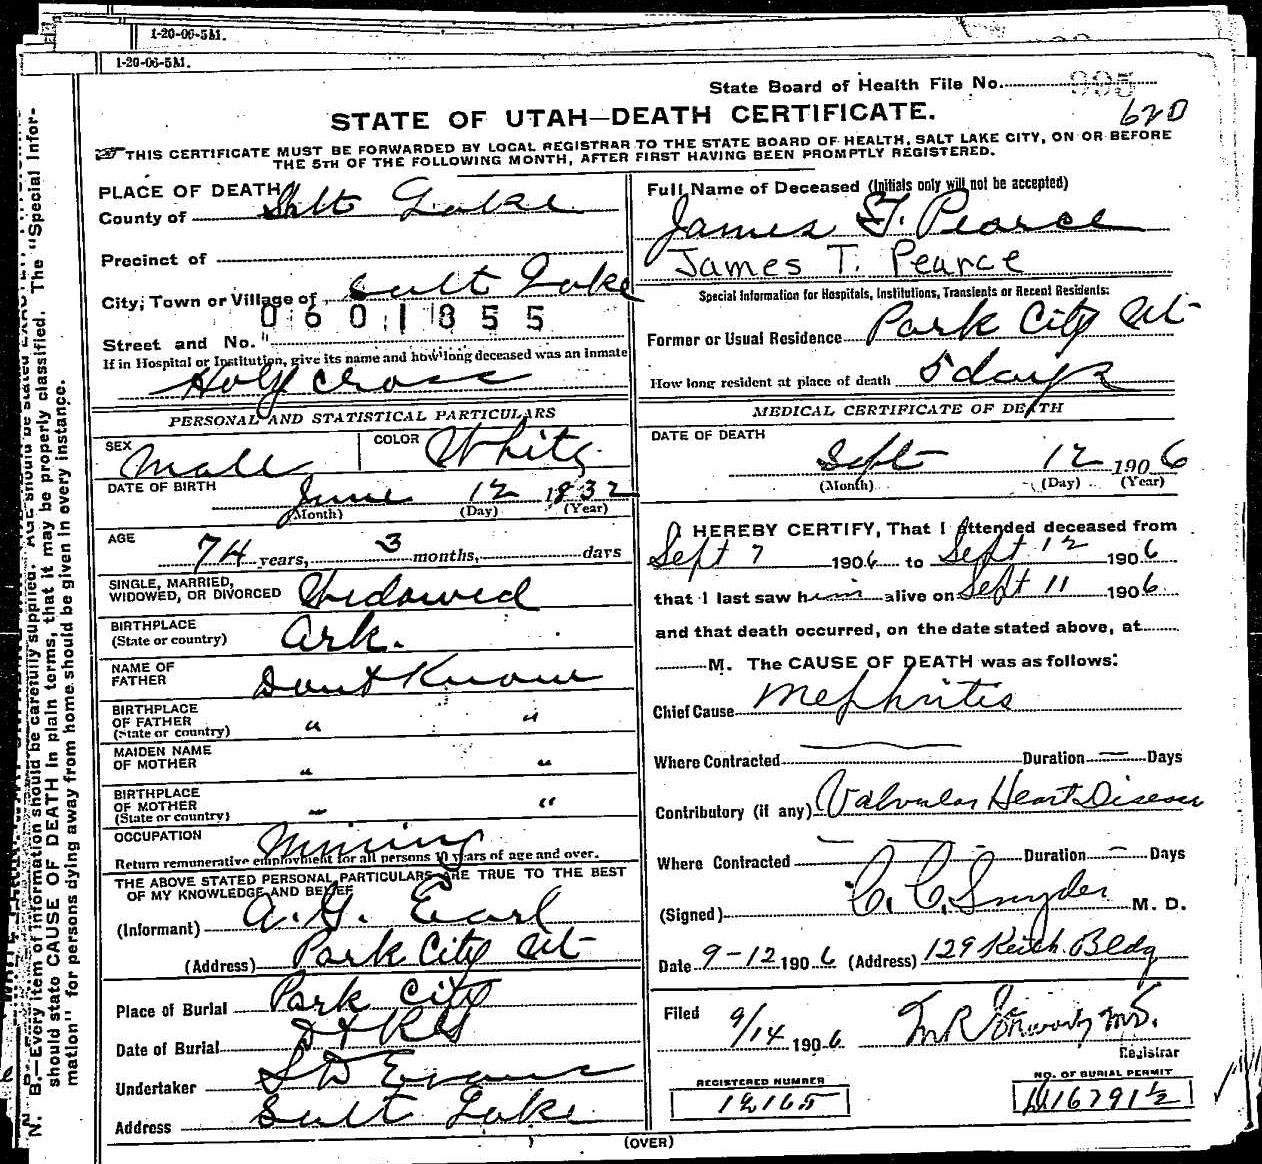 1-20-06-5M.
1-20-06-5M.
State Board of Health File No. 995
620
STATE OF UTAH—DEATH CERTIFICATE.
THIS CERTIFICATE MUST BE FORWARDED BY LOCAL REGISTRAR TO THE STATE BOARD OF HEALTH, SALT LAKE CITY, ON OR BEFORE
THE 5TH OF THE FOLLOWING MONTH, AFTER FIRST HAVING BEEN PROMPTLY REGISTERED.
PLACE OF DEATH
County of Salt Lake
Precinct of
City, Town or Village of Salt Lake
0601855
Street and No.
If in Hospital or Institution, give its name and how long deceased was an inmate
Holy Cross
PERSONAL AND STATISTICAL PARTICULARS
SEX Male COLOR White
DATE OF BIRTH June 12 1832
(Month) (Day) (Year)
AGE 74 years, 3 months, days
SINGLE, MARRIED,
WIDOWED, OR DIVORCED Widowed
BIRTHPLACE
(State or country) Ark.
NAME OF
FATHER Dont Know
BIRTHPLACE
OF FATHER " "
(State or country)
MAIDEN NAME
OF MOTHER " "
BIRTHPLACE
OF MOTHER " "
(State or country)
OCCUPATION Mining
Return remunerative employment for all persons 10 years of age and over.
THE ABOVE STATED PERSONAL PARTICULARS ARE TRUE TO THE BEST
OF MY KNOWLEDGE AND BELIEF
(Informant) A. G. Earl
(Address) Park City Ut
Place of Burial Park City
Date of Burial
Undertaker S D Evans
Address Salt Lake
Full Name of Deceased (Initials only will not be accepted)
James T. Pearce
James T. Pearce
Special Information for Hospitals, Institutions, Transients or Recent Residents:
Former or Usual Residence Park City Ut
How long resident at place of death 5 days
MEDICAL CERTIFICATE OF DEATH
DATE OF DEATH
Sept 12 1906
(Month) (Day) (Year)
I HEREBY CERTIFY, That I attended deceased from
Sept 7 1906 to Sept 12 1906
that I last saw him alive on Sept 11 1906
and that death occurred, on the date stated above, at
M. The CAUSE OF DEATH was as follows:
Chief Cause Nephritis
Where Contracted — Duration — Days
Contributory (if any) Valvular Heart Disease
Where Contracted — Duration — Days
(Signed) C. C. Snyder M. D.
Date 9-12 1906 (Address) 129 Keith Bldg
Filed
9/14 1906 M.D.
Registrar
REGISTERED NUMBER
12165
NO. OF BURIAL PERMIT
16791½
(OVER)
N. B.—Every item of information should be carefully supplied. AGE should be stated EXACTLY.
should state CAUSE OF DEATH in plain terms, that it may be properly classified. The "Special Infor-
mation" for persons dying away from home should be given in every instance.